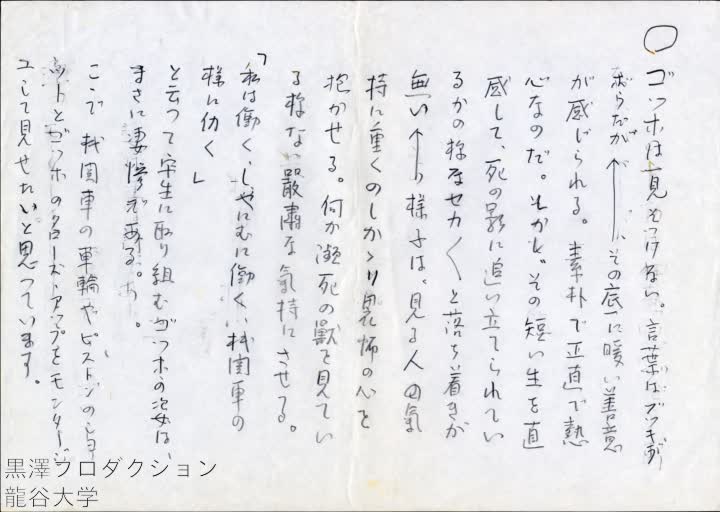 ○ ゴッホは一見そっけない。言葉はブッキラ
ボウだが、その底に暖い善意
が感じられる。素朴で正直で熱
心なのだ。しかし、その短い生を直
感して、死の影に追い立てられてい
るかの様なセカ〱と落ち着きが
無い様子は、見る人の氣
持に重くのしかゝり畏怖の心を
抱かせる。何か瀕死の獣を見てい
る様な厳粛な氣持にさせる。
「私は働く、しゃにむに働く、機関車の
様に仂く」
と云って写生に取り組むゴッホの姿は、
まさに凄惨である。
ここで 機関車の車輪やピストンの
ットとゴッホのクローズ・アップをモンタージ
ュして見せたいと思っています。
黒澤プロダクション
龍谷大学